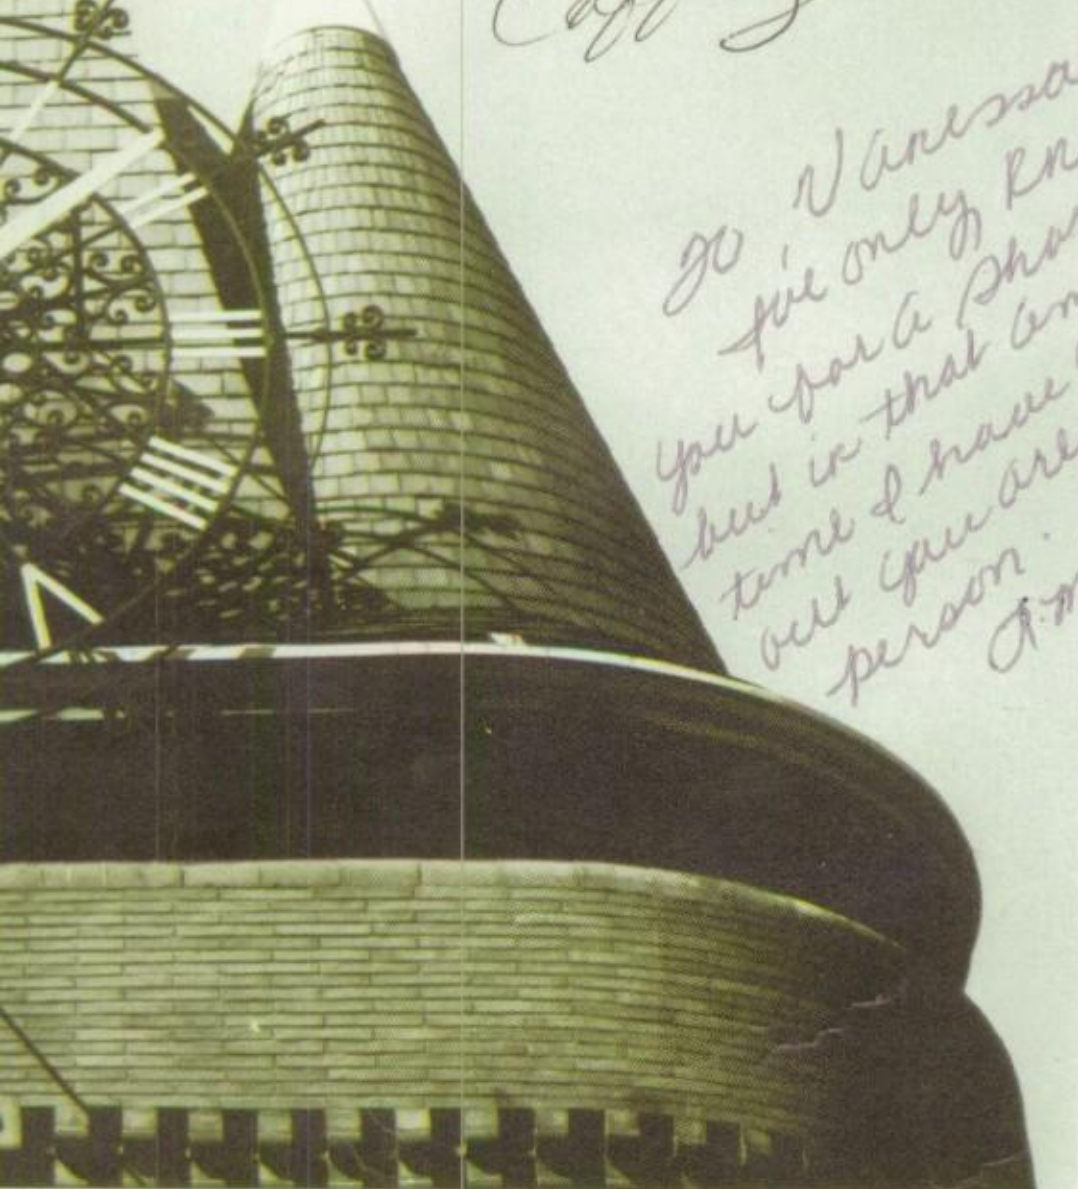 To Vanessa
I've only kn
you for a sho
but in that am
time I have
out you are
person.